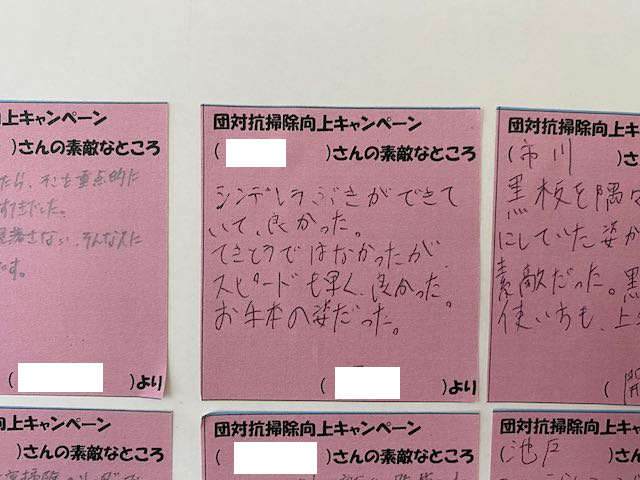 上キャンペーン
)さんの素敵なところ
たら、そこを重点的に
(
)より
団対抗掃除向上キャンペーン
(
)さんの素敵なところ
シンデレラぶきができて
いて、良かった。
てきとうではなかったが、
スピードも早く、良かった。
お手本の姿だった。
(
)より
団対抗掃除向上キ
(市川
)さ
黒板を隅々
にしていた姿が
素敵だった。黒
使い方も、上
(
上キャンペーン
)さんの素敵なところ
団対抗掃除向上キャンペーン
(
)さんの素敵なところ
団対抗掃除向上キャン
(池戸
)さんの